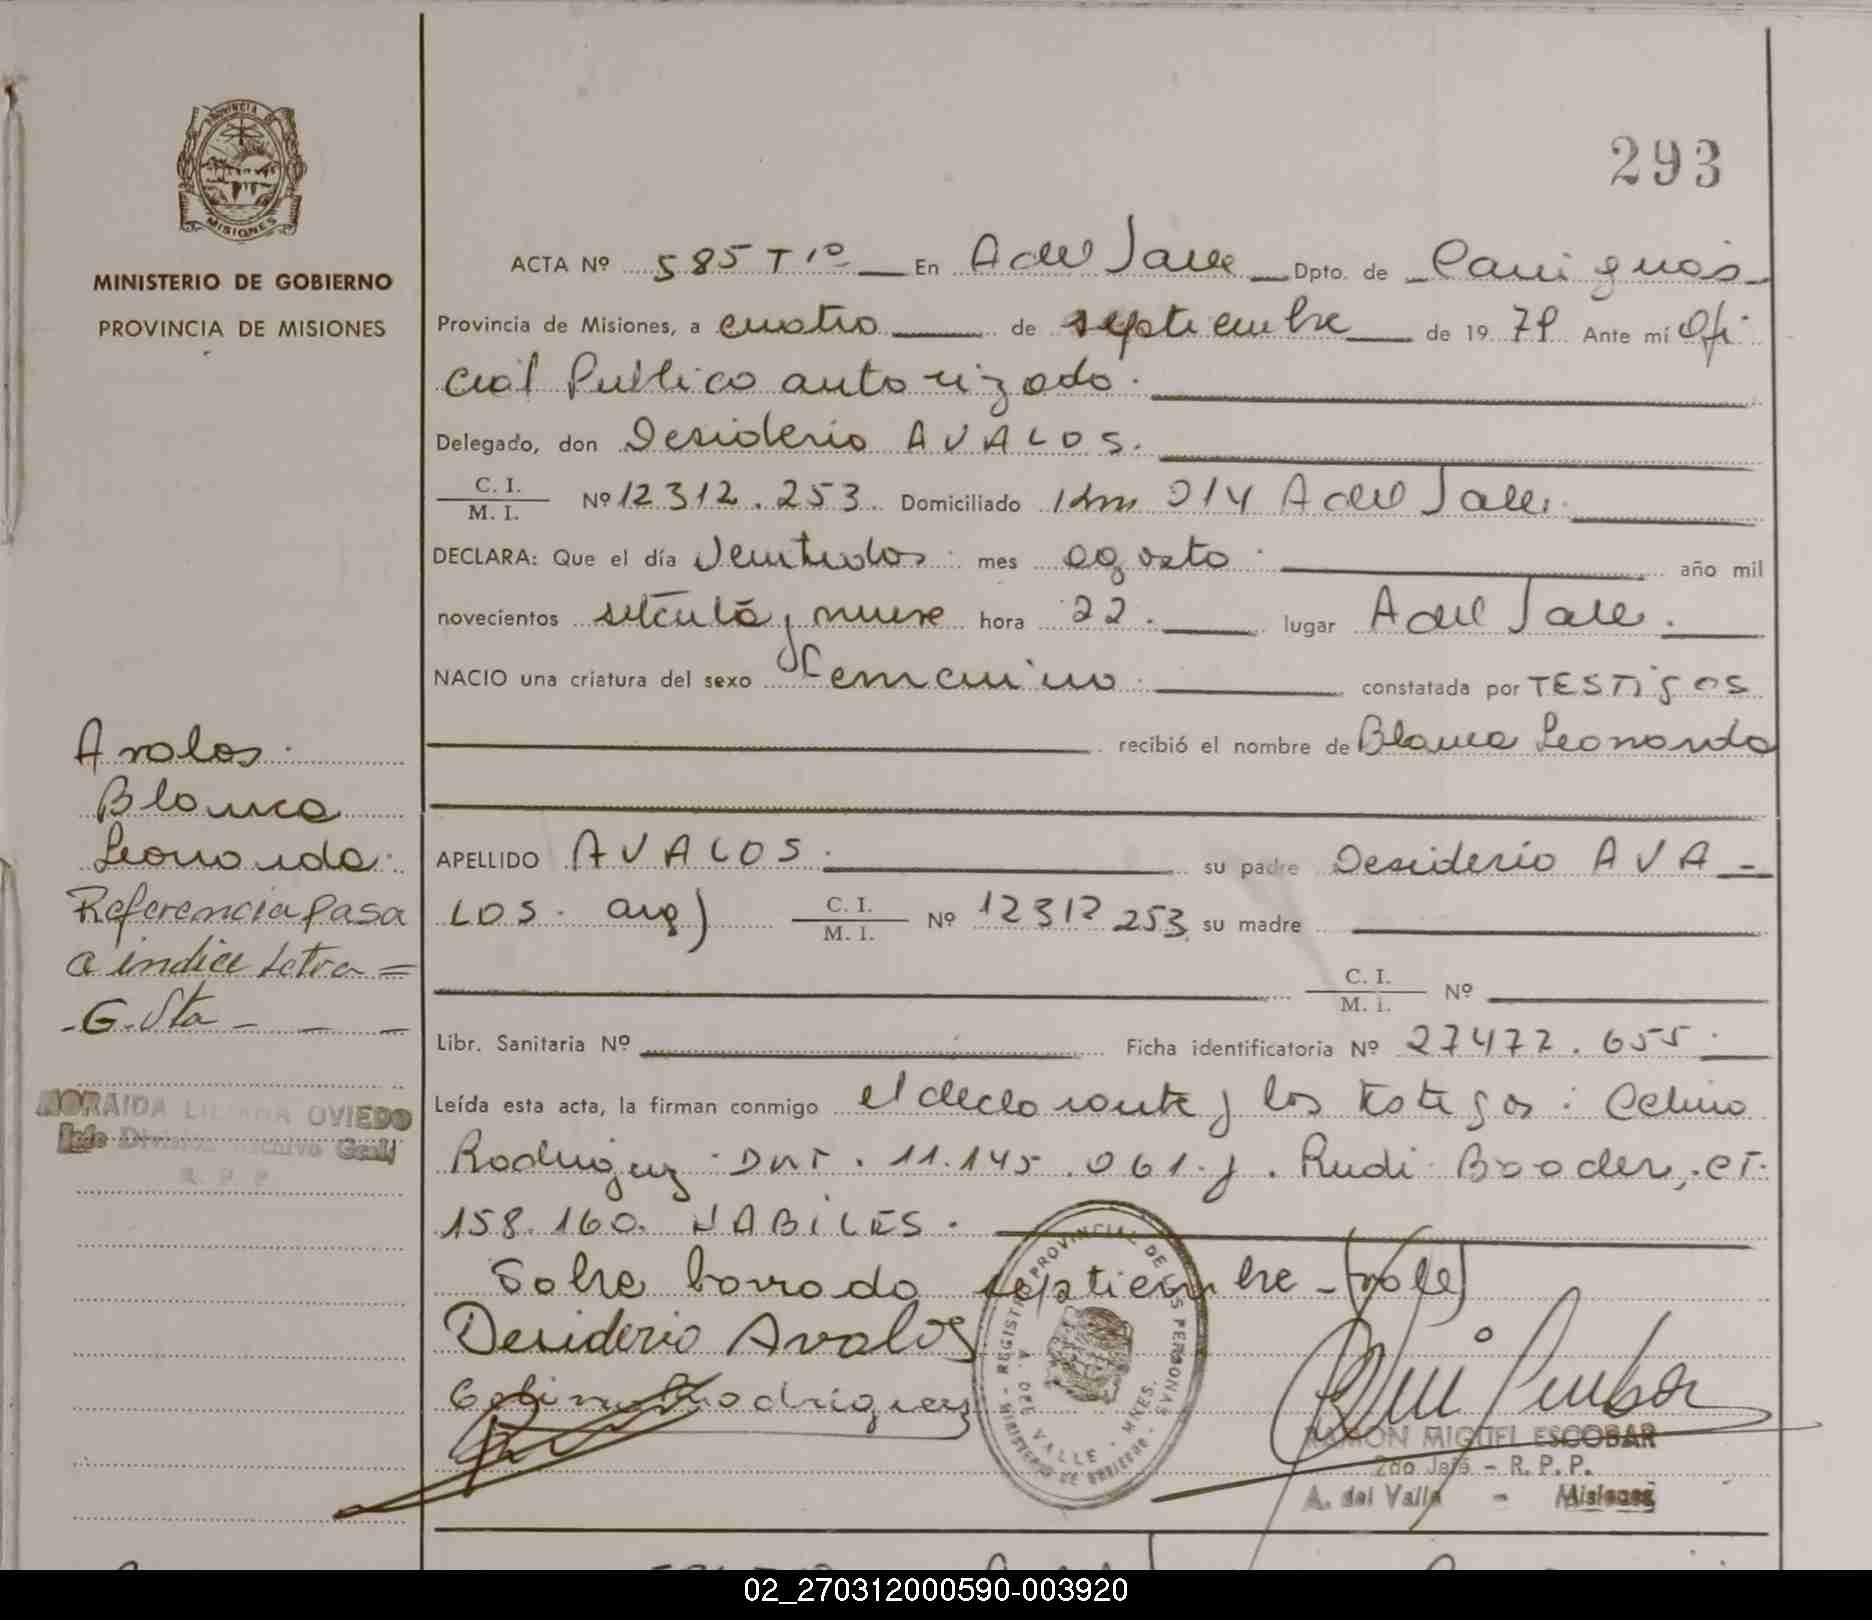 PROVINCIA DE
MISIONES
MINISTERIO DE GOBIERNO
PROVINCIA DE MISIONES
293
ACTA Nº 585 T 1º En A del Valle Dpto. de Cainguás
Provincia de Misiones, a cuatro de septiembre de 1979 Ante mí Ofi
cial Publico autorizado.
Delegado, don Desiderio AVALOS.
C. I.
M. I. Nº 12312.253. Domiciliado Km 214 A del Valle.
DECLARA: Que el día veintidos mes agosto año mil
novecientos setenta y nueve hora 22. lugar A del Valle.
NACIO una criatura del sexo femenino constatada por TESTigos
recibió el nombre de Blanca Leonarda
APELLIDO AVALOS. su padre Desiderio AVA-
LOS. arg) C. I.
M. I. Nº 12312 253 su madre
C. I.
M. I. Nº
Libr. Sanitaria Nº Ficha identificatoria Nº 27477.655.
Leída esta acta, la firman conmigo el declarante y los testigos: Celino
Rodriguez DNI. 11.145.061. y. Rudi Booder, CI.
158.160. HABILES.
Sobre borrado septiembre - (vale)
Desiderio Avalos
Celino Rodriguez
REGISTRO PROVINCIAL DE LAS PERSONAS
A. DEL VALLE - MNES.
MINISTERIO DE GOBIERNO
RAMON MIGUEL ESCOBAR
2do Jefe - R. P. P.
A. del Valle - Misiones
Avalos.
Blanca
Leonarda.
Referencia Pasa
a indice Letra =
-G. Sta - - -
NORAIDA LILIANA OVIEDO
Jefe Division Archivo Gral
R. P. P.
02_270312000590-003920